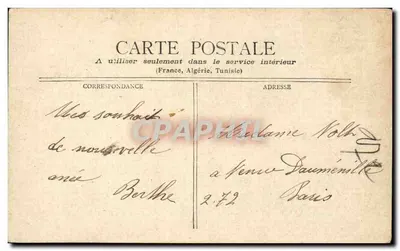 CARTE POSTALE
A utiliser seulement dans le service intérieur
(France, Algérie, Tunisie)
CORRESPONDANCE
Mes souhait
de nouvelle
anée
Berthe
ADRESSE
Madame Nolb
a venue Dauménille
272
Paris